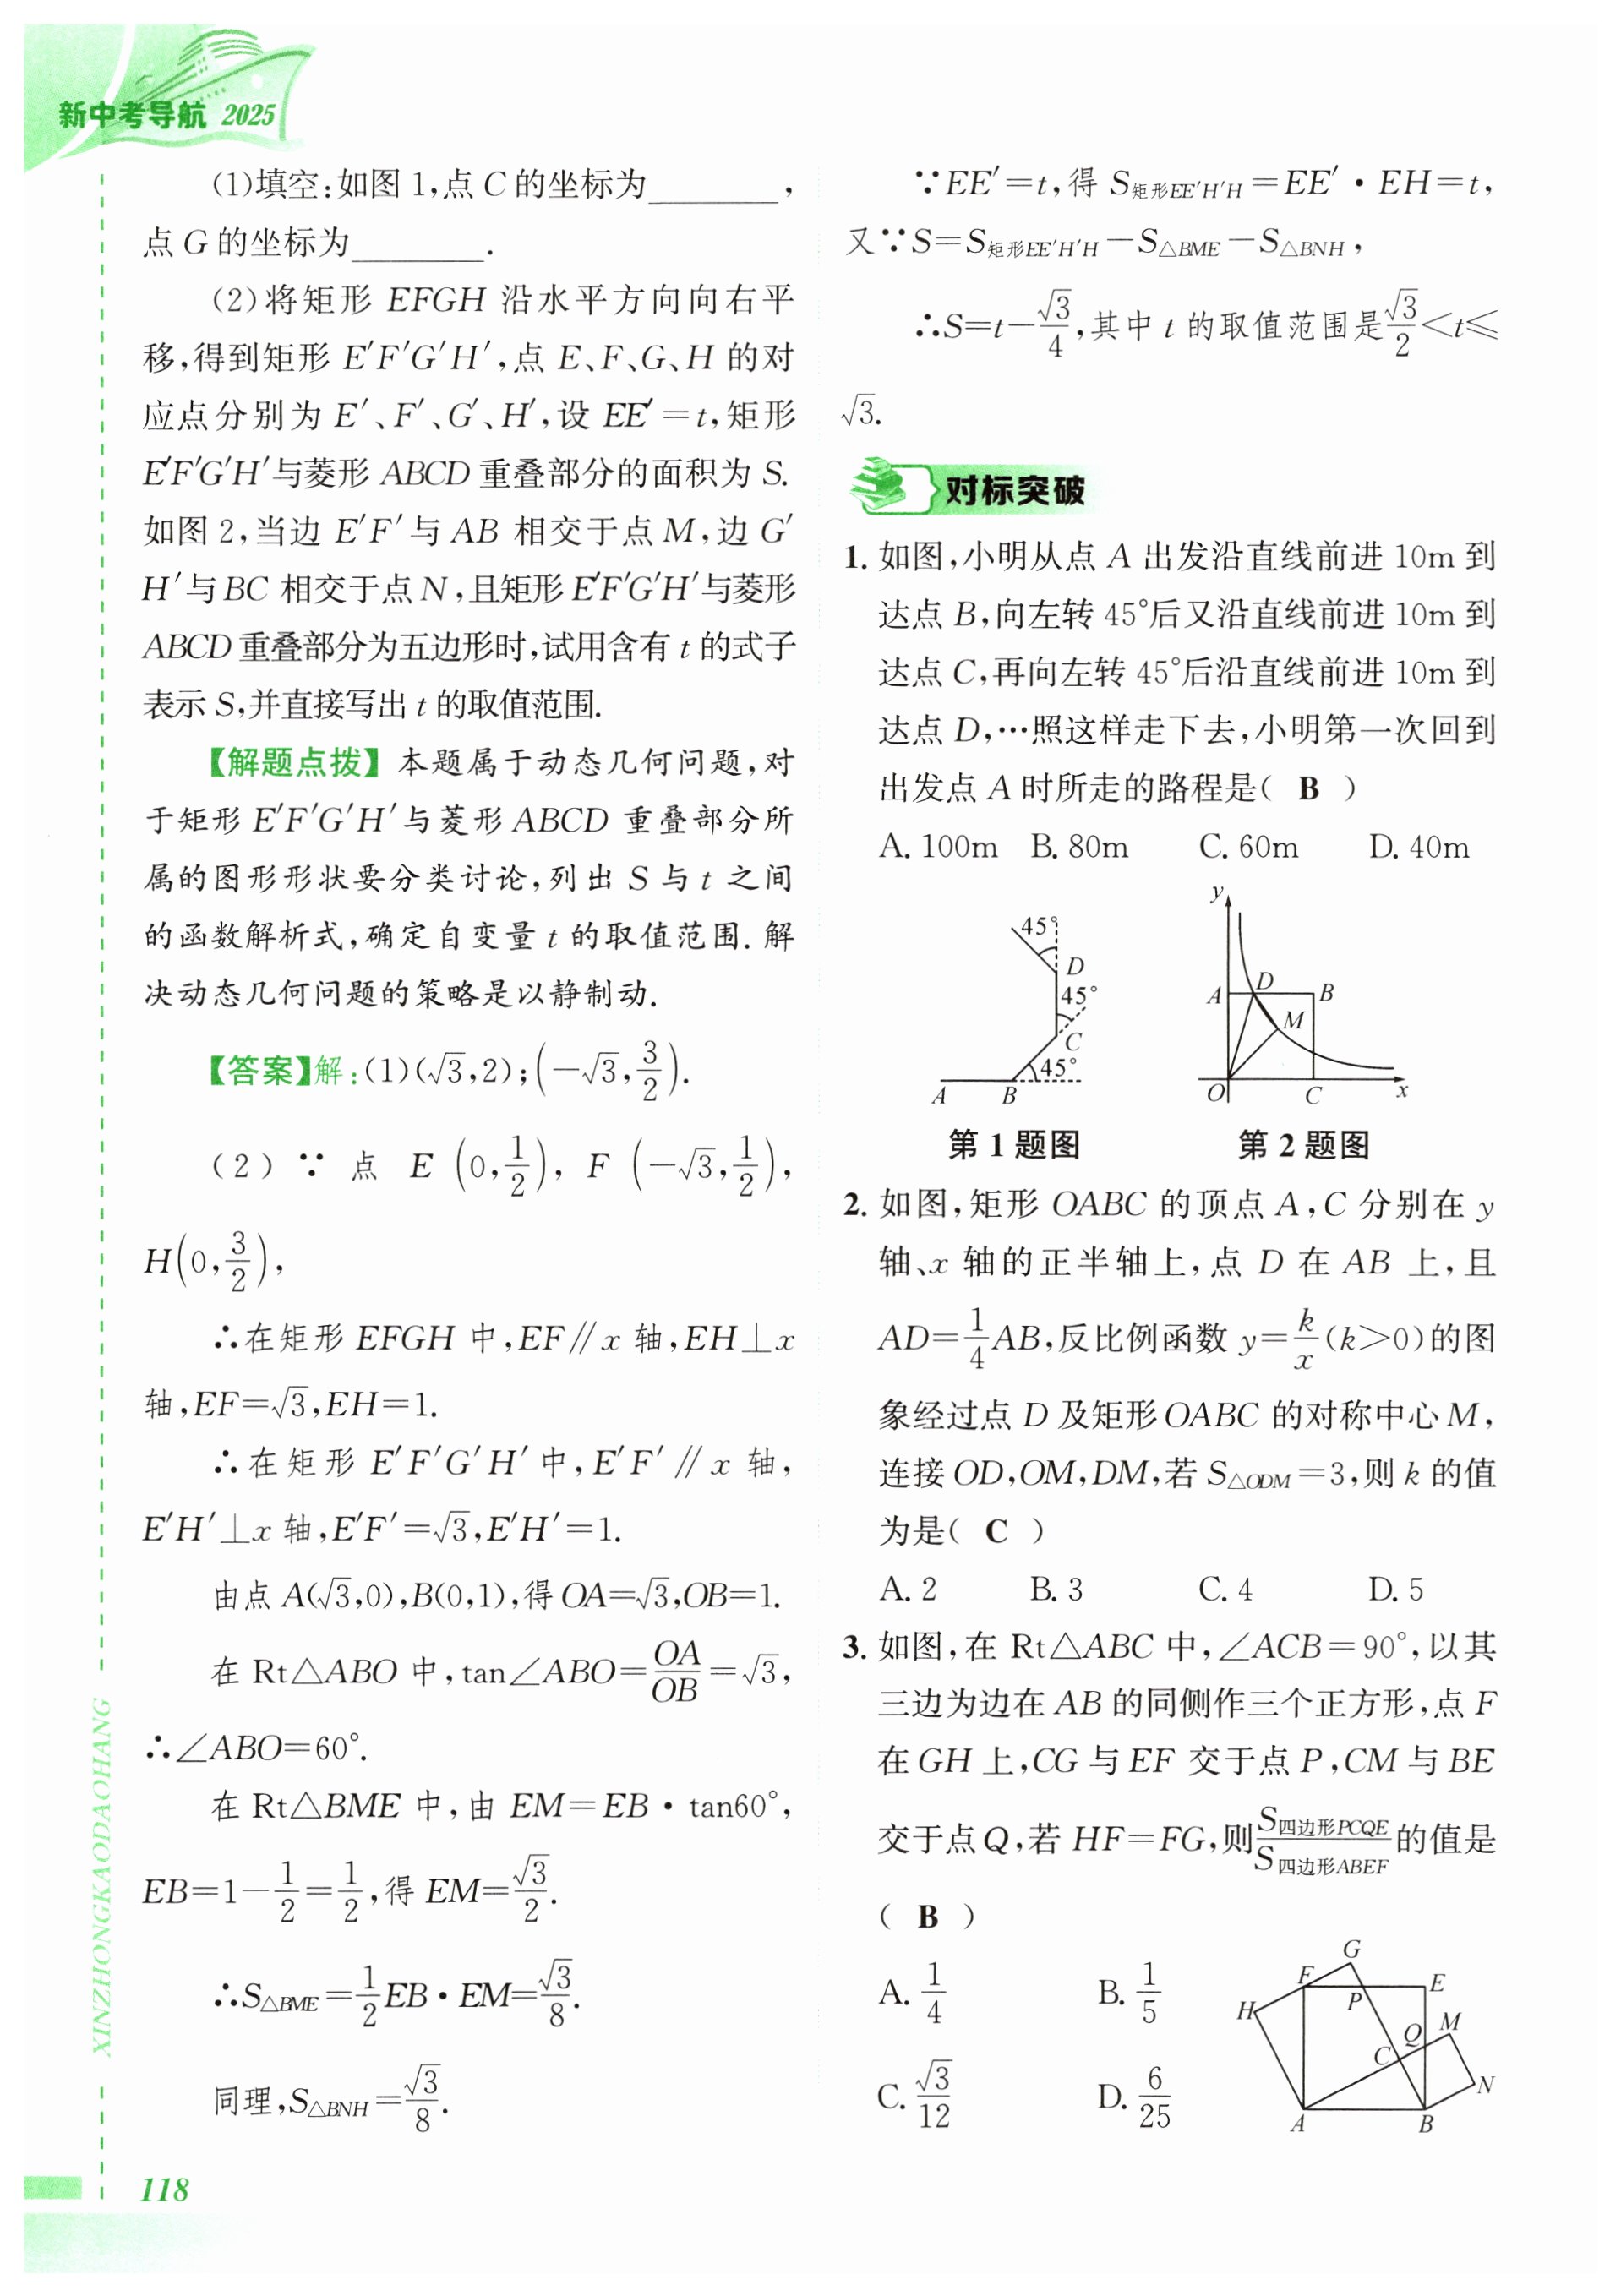 新中考导航 2025
(1)填空:如图 1,点 C 的坐标为________,
点 G 的坐标为________.
(2)将矩形 EFGH 沿水平方向向右平
移,得到矩形 E′F′G′H′,点 E、F、G、H 的对
应点分别为 E′、F′、G′、H′,设 EE′=t,矩形
E′F′G′H′与菱形 ABCD 重叠部分的面积为 S.
如图 2,当边 E′F′与 AB 相交于点 M,边 G′
H′与 BC 相交于点 N,且矩形 E′F′G′H′与菱形
ABCD 重叠部分为五边形时,试用含有 t 的式子
表示 S,并直接写出 t 的取值范围.
【解题点拨】本题属于动态几何问题,对
于矩形 E′F′G′H′与菱形 ABCD 重叠部分所
属的图形形状要分类讨论,列出 S 与 t 之间
的函数解析式,确定自变量 t 的取值范围. 解
决动态几何问题的策略是以静制动.
【答案】解:(1)(√3,2);(−√3,3/2).
(2)∵点 E (0,1/2), F (−√3,1/2),
H(0,3/2),
∴在矩形 EFGH 中,EF∥x 轴,EH⊥x
轴,EF=√3,EH=1.
∴在矩形 E′F′G′H′中,E′F′∥x 轴,
E′H′⊥x 轴,E′F′=√3,E′H′=1.
由点 A(√3,0),B(0,1),得 OA=√3,OB=1.
在 Rt△ABO 中,tan∠ABO=OA/OB=√3,
∴∠ABO=60°.
在 Rt△BME 中,由 EM=EB·tan60°,
EB=1−1/2=1/2,得 EM=√3/2.
∴S△BME=1/2EB·EM=√3/8.
同理,S△BNH=√3/8.
XINZHONGKAODAOHANG
118
∵EE′=t,得 S矩形EE′H′H=EE′·EH=t,
又∵S=S矩形EE′H′H−S△BME−S△BNH,
∴S=t−√3/4,其中 t 的取值范围是√3/2<t≤
√3.
对标突破
1. 如图,小明从点 A 出发沿直线前进 10m 到
达点 B,向左转 45°后又沿直线前进 10m 到
达点 C,再向左转 45°后沿直线前进 10m 到
达点 D,…照这样走下去,小明第一次回到
出发点 A 时所走的路程是( B )
A. 100m B. 80m C. 60m D. 40m
45°
D
45°
C
45°
A B
y
A D B
M
O C x
第 1 题图 第 2 题图
2. 如图,矩形 OABC 的顶点 A,C 分别在 y
轴、x 轴的正半轴上,点 D 在 AB 上,且
AD=1/4AB,反比例函数 y=k/x(k>0)的图
象经过点 D 及矩形 OABC 的对称中心 M,
连接 OD,OM,DM,若 S△ODM=3,则 k 的值
为是( C )
A. 2 B. 3 C. 4 D. 5
3. 如图,在 Rt△ABC 中,∠ACB=90°,以其
三边为边在 AB 的同侧作三个正方形,点 F
在 GH 上,CG 与 EF 交于点 P,CM 与 BE
交于点 Q,若 HF=FG,则S四边形PCQE/S四边形ABEF的值是
( B )
A. 1/4 B. 1/5
C. √3/12 D. 6/25
G
F E
H P
Q M
C
N
A B